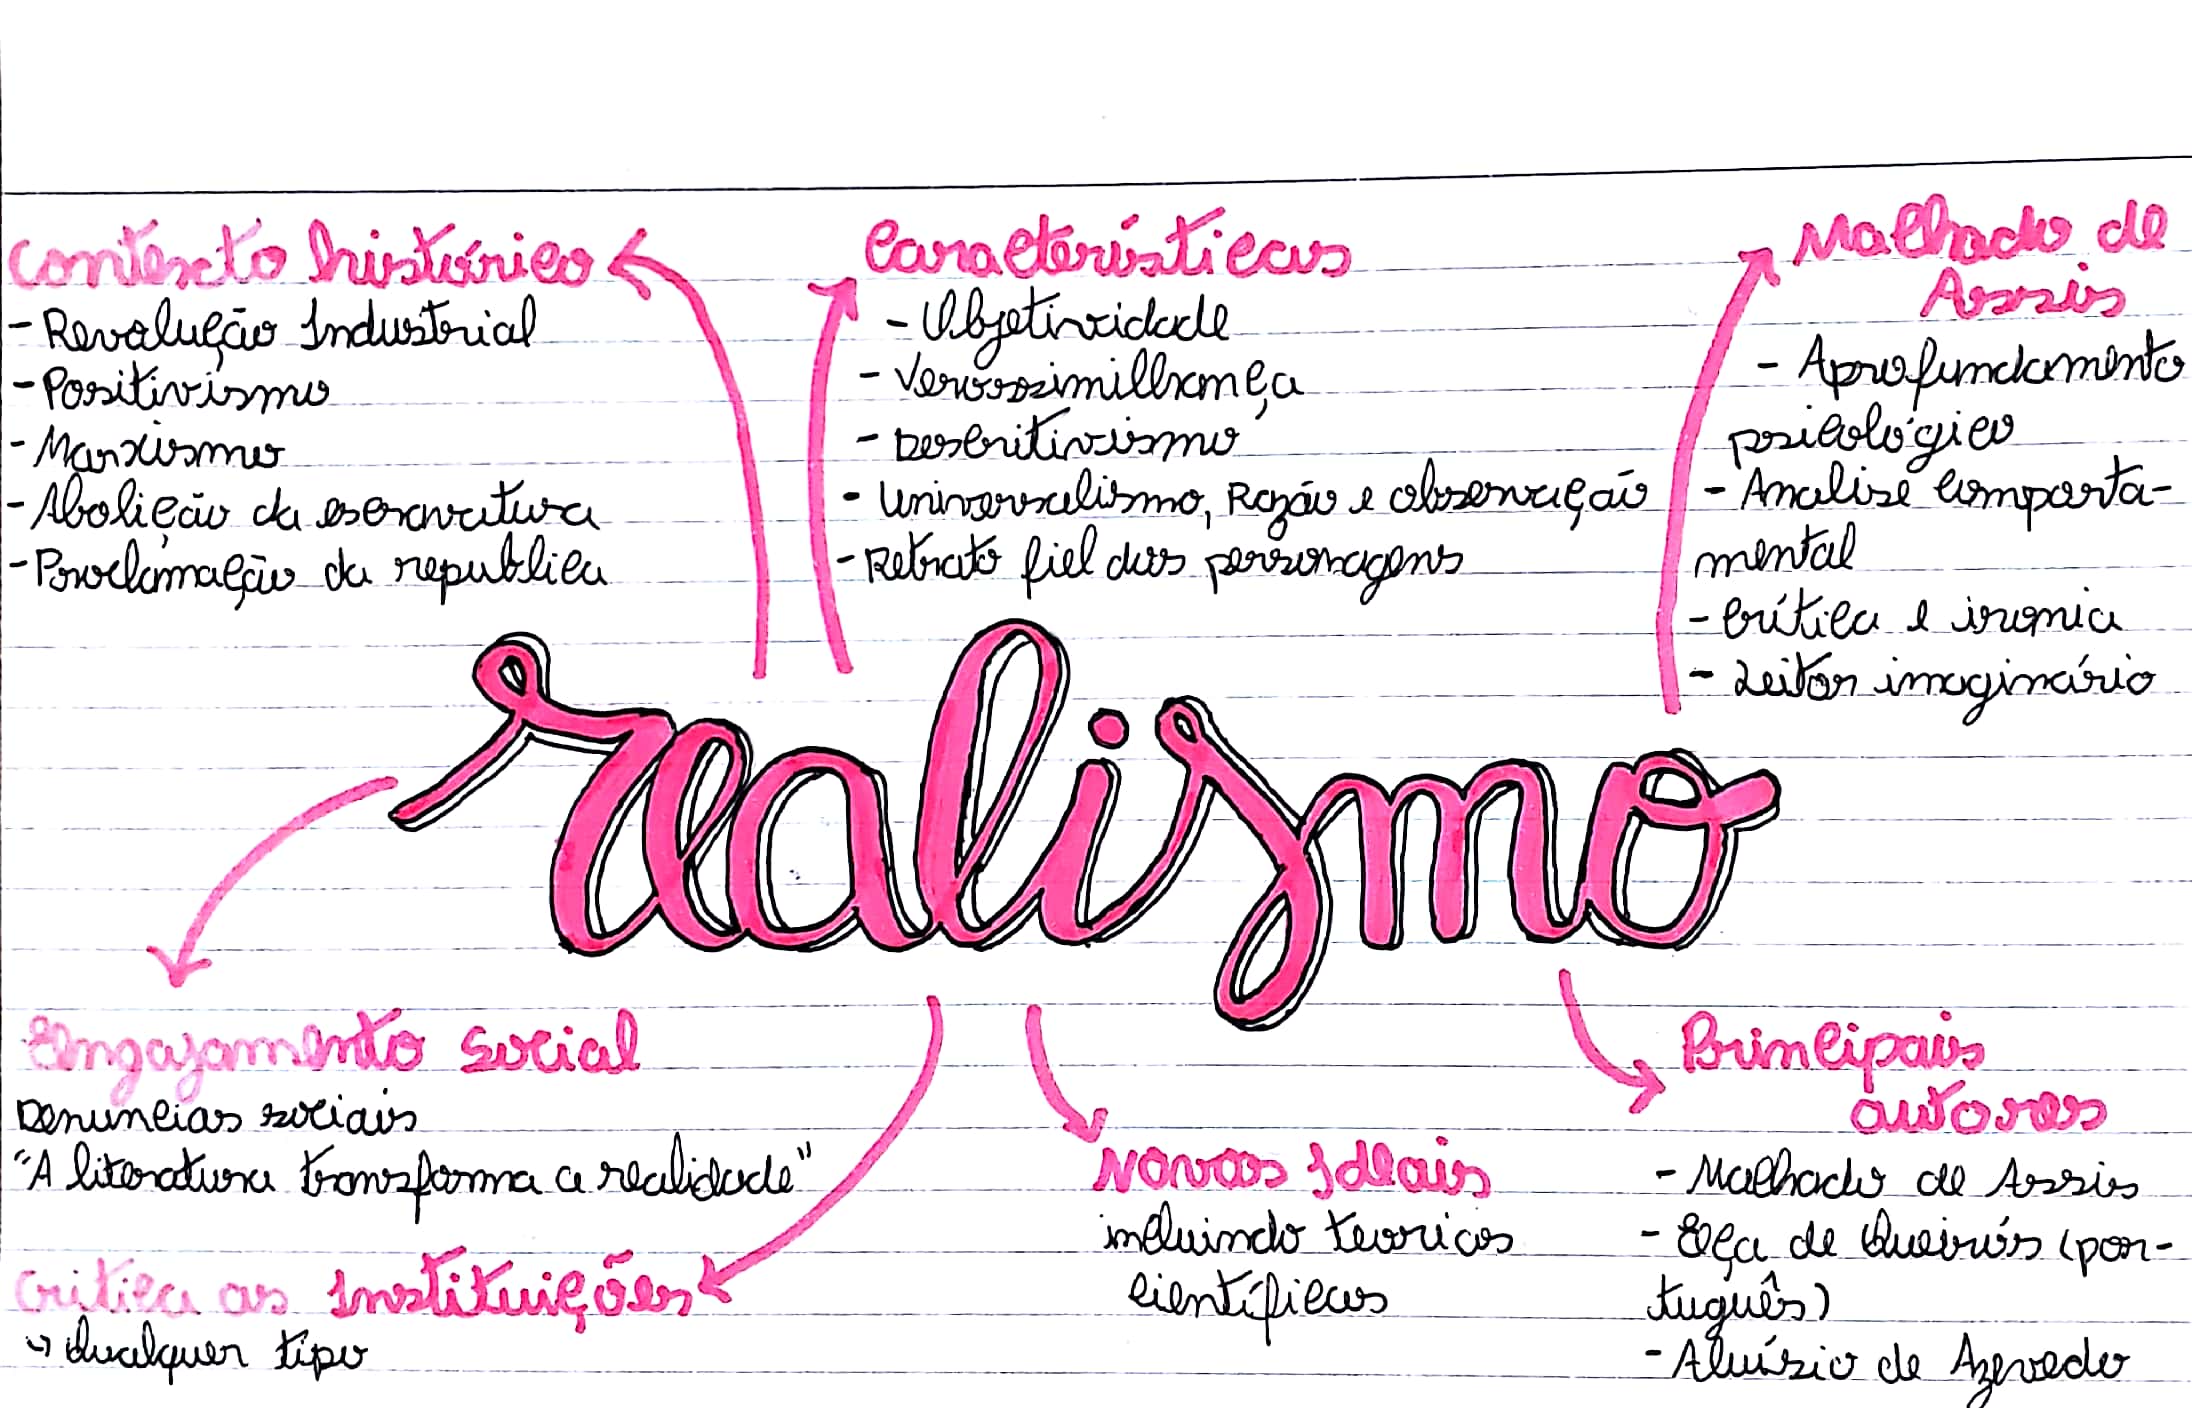 Contexto histórico
- Revolução Industrial
- Positivismo
- Marxismo
- Abolição da escravatura
- Proclamação da republica
Características
- Objetividade
- Verossimilhança
- Descritivismo
- Universalismo, Razão e observação
- Retrato fiel dos personagens
Machado de
Assis
- Aprofundamento
psicológico
- Analise comporta-
mental
- Crítica e ironia
- Leitor imaginário
realismo
Engajamento Social
Denuncias sociais
"A literatura transforma a realidade"
Critica as Instituições
↪ Qualquer tipo
Novos Ideais
incluindo teoricos
científicos
Principais
autores
- Machado de Assis
- Eça de Queirós (por-
tuguês)
- Aluísio de Azevedo